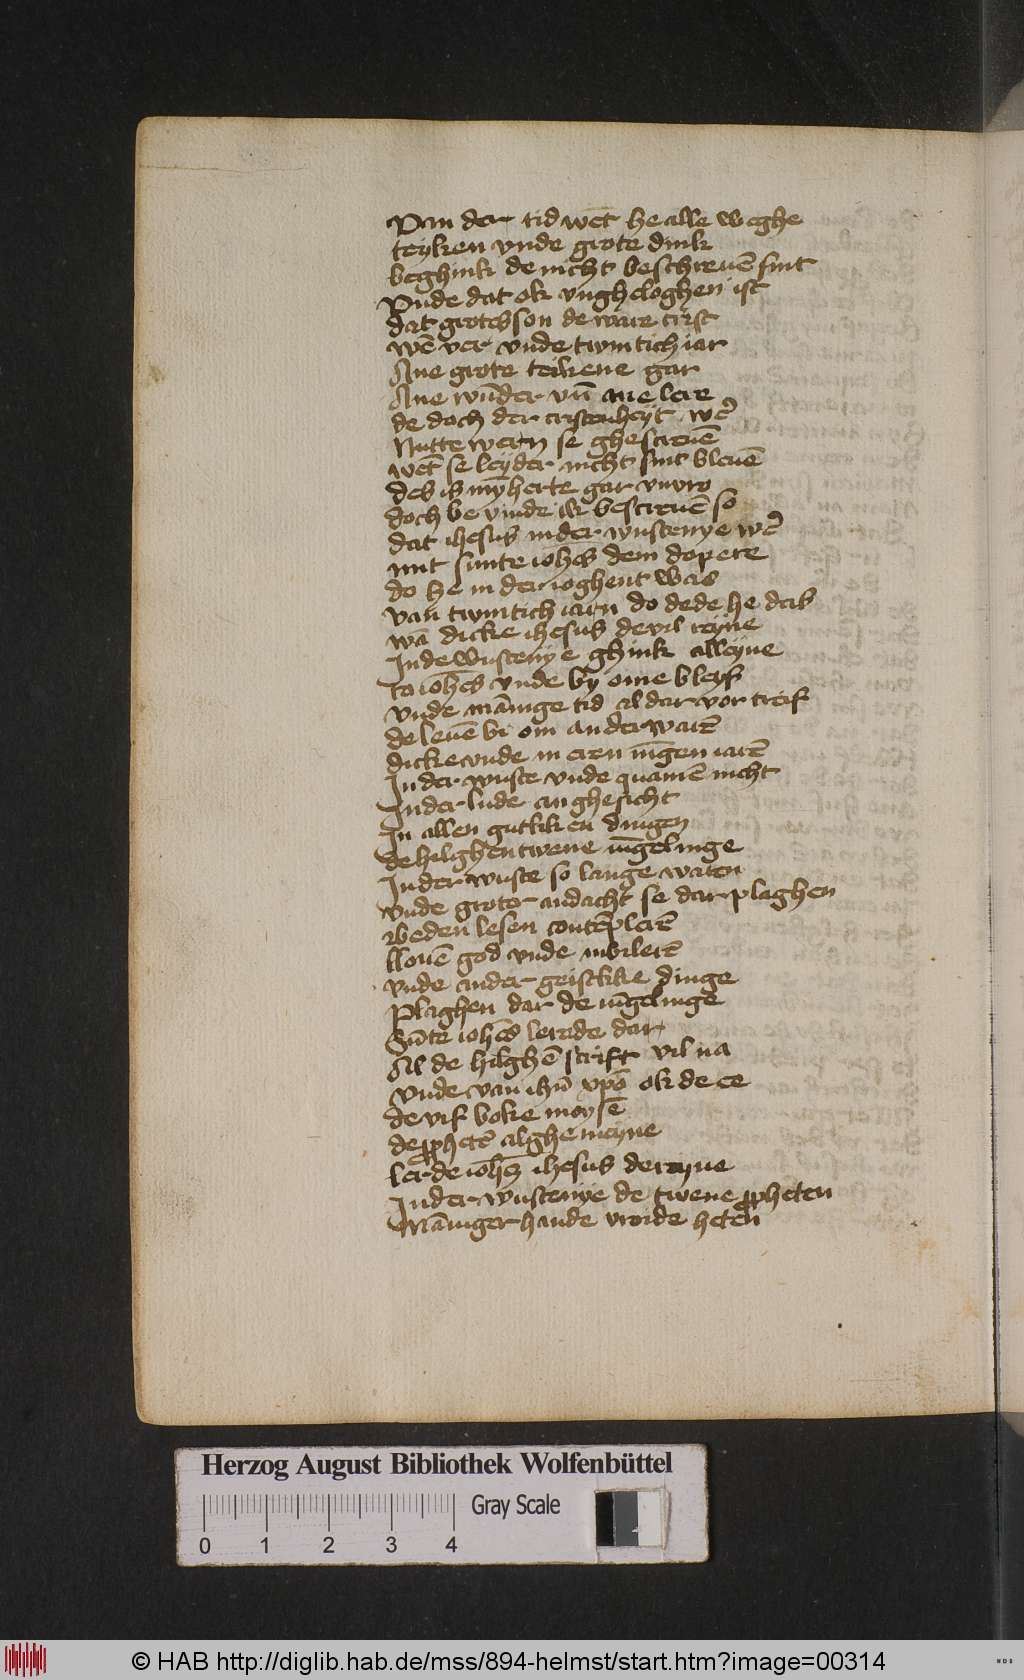 Van der tid wēt he alle weghe
teyken vnde grote dink
beghink de nicht beschreuē sint
Vnde dat ok vngheloghen ist
dat grotes son de ware crist
wē ver vnde twintich iar
Ane grote teikene gar
Ane wūder vn̄ ane lere
de doch der cristenheyt we͛
Nutte wern se ghescreuē
wēt se leyder nicht sint bleuē
des is myn herte gar vnvro
doch be vinde ik bescreuē so
dat ihesus in der wustenye we͛
mit sunte ioh̄es dem dopere
do he in der ioghent was
van twintich iarn do dede he das
wā dicke ihesus de vil reyne
In de wustenye ghink alleyne
to ioh̄es vnde by ome bleyf
vnde mānige tid al dar vor treif
de leuē bi om ander warē
dicke vnde in eren iūgen iarē
In der wuste vnde quamē nicht
In der lude an ghesicht
In allen gutliken dingen
de hilghen twene iūgelinge
In der wuste so lange waren
vnde groter andacht se dar plaghen
beden lesen contēplerē
llouē god vnde iubilerē
vnde ander geistlike dinge
Plaghen dar de iūgelinge
Sūte ioh̄es lerede dar
Al de hilghē scrift vil na
vnde van ihū xpō ok de ee
de vif boke moysē
de ꝓphetē alghemeyne
lerde ioh̄es ihesus de reyne
In der wustenye de twene ꝓpheten
Māniger hande vroide heten
Herzog August Bibliothek Wolfenbüttel
Gray Scale
0 1 2 3 4
© HAB http://diglib.hab.de/mss/894-helmst/start.htm?image=00314